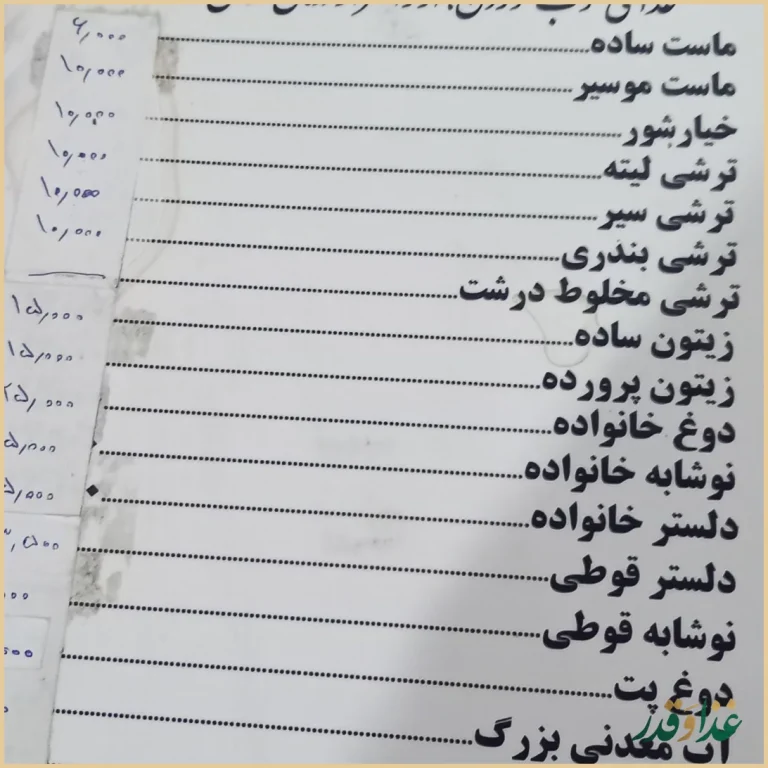 ماست ساده ۶,۰۰۰
ماست موسیر ۱۰,۰۰۰
خیارشور ۱۰,۰۰۰
ترشی لیته ۱۰,۰۰۰
ترشی سیر ۱۰,۰۰۰
ترشی بندری ۱۰,۰۰۰
ترشی مخلوط درشت
زیتون ساده ۱۵,۰۰۰
زیتون پرورده ۱۵,۰۰۰
دوغ خانواده ۲۵,۰۰۰
نوشابه خانواده
دلستر خانواده
دلستر قوطی
نوشابه قوطی
دوغ پت
آب معدنی بزرگ
غذا و قدر